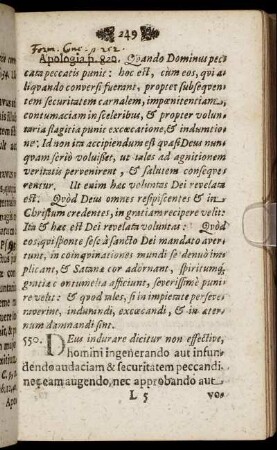 249
Form. Conc. p 252.
Apologia p. 820. Quando Dominus pec
cata peccatis punit: hoc est, cum eos, qui a-
liquando conversi fuerant, propter subsequen-
tem securitatem carnalem, impœnitentiam,
contumaciam in sceleribus, & propter volun-
taria flagitia punit excæcatione, & induratio-
ne: Id non ita accipiendum est quasi Deus nun-
quam seriò voluisset, ut tales ad agnitionem
veritatis pervenirent, & salutem conseque-
rentur. Ut enim hæc voluntas Dei revelata
est: Quòd Deus omnes resipiscentes & in
Christum credentes, in gratiam recipere velit:
Ita & hæc est Dei revelata voluntas: Quòd
eos, qui sponte sese à sancto Dei mandato aver-
tunt, in coinquinationes mundi se denuò im-
plicant, & Satanæ cor adornant, spiritumq;
gratiæ contumelia afficiunt, severissimè puni-
re velit: & quod tales, si in impietate perseve-
raverint, indurandi, excæcandi, & in æter-
num damnandi sint.
550. DEus indurare dicitur non effectivè,
homini ingenerando aut infun-
dendo audaciam & securitatem peccandi
neq; eam augendo, nec approbando aut
L 5 vo-